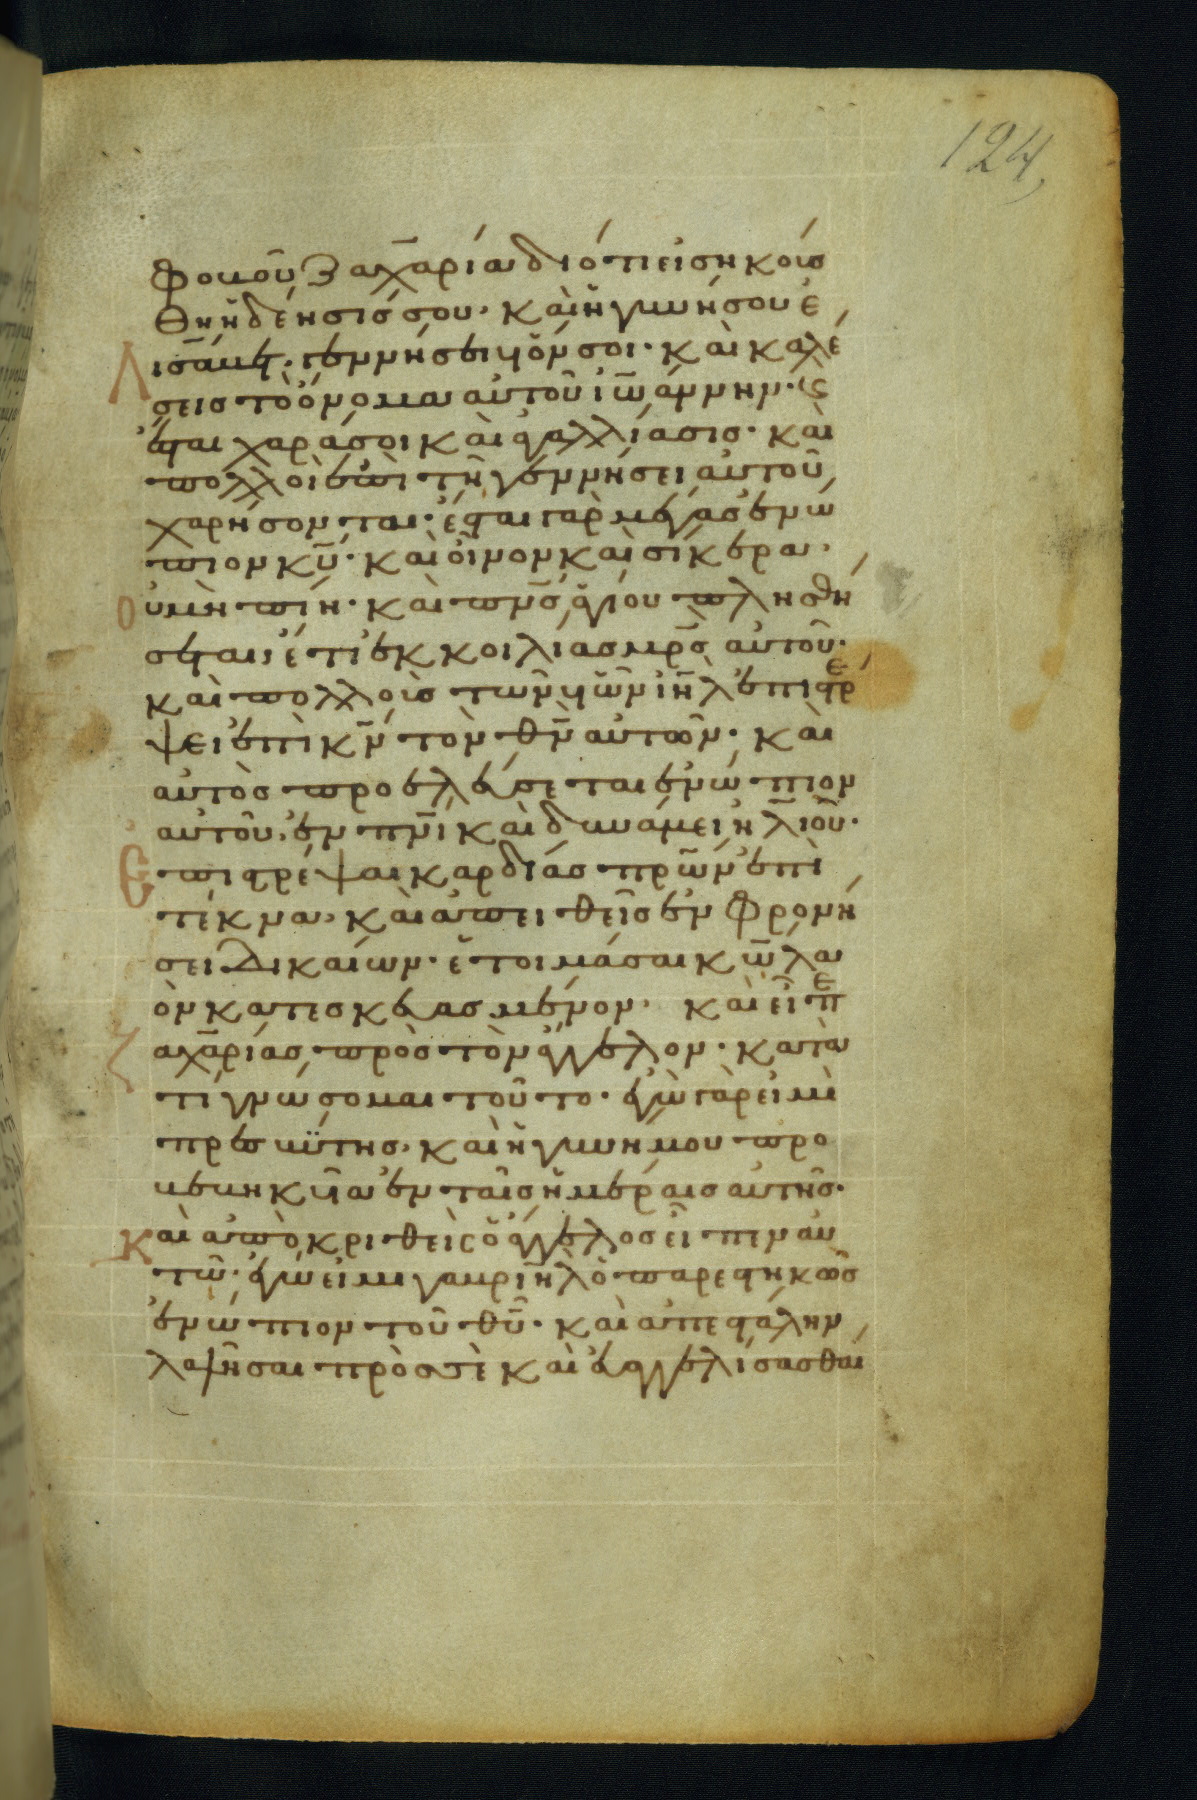 124,
φοβοῦ ζαχαρία διότι εἰσηκούσ
θη ἡ δέησίς σου, καὶ ἡ γυνή σου ἐ
λισάβετ γεννήσει υἱόν σοι· καὶ καλέ
σεις τὸ ὄνομα αὐτοῦ ἰω̅άννην· κ
ἔσται χαρά σοι καὶ ἀγαλλίασις· καὶ
πολλοὶ ἐπὶ τῆ γεννήσει αὐτοῦ
χαρήσονται· ἔσται γὰρ μέγας ἐνώ
πιον κ̅υ̅· καὶ οἶνον καὶ σίκερα,
οὐ μὴ πίη· καὶ π̅ν̅ς̅ ἁγίου πλησθή
σεται, ἔτι ἐκ κοιλίας μ̅ρ̅ς̅ αὐτοῦ·
καὶ πολλοὺς τῶν υἱῶν ι̅η̅λ̅ ἐπιστρέ
ψει ἐπὶ κ̅ν̅ τὸν θ̅ν̅ αὐτῶν· καὶ
αὐτὸς προελεύσεται ἐνώπιον
αὐτοῦ, ἐν π̅ν̅ι̅ καὶ δυνάμει ἠλιοῦ·
Ἐπιστρέψαι καρδίας π̅ρ̅ω̅ν̅ ἐπὶ
τέκνα, καὶ ἀπειθεῖς ἐν φρονή
σει δικαίων· ἑτοιμάσαι κ̅ω̅ λα
ὸν κατεσκευασμένον, καὶ εἶπε
ζαχαρίας πρὸς τὸν ἄγγελον· κατὰ
τί γνώσομαι τοῦτο· ἐγὼ γὰρ εἰμὶ
πρεσβύτης, καὶ ἡ γυνή μου προ
βεβηκυῖα ἐν ταῖς ἡμέραις αὐτῆς·
καὶ ἀποκριθεὶς ὁ ἄγγελος εἶπεν αὐ
τῶ· ἐγώ εἰμι γαβριὴλ ὁ παρεστηκὼς
ἐνώπιον τοῦ θ̅υ̅· καὶ ἀπεστάλην
λαλῆσαι πρός σὲ καὶ εὐαγγελίσασθαι